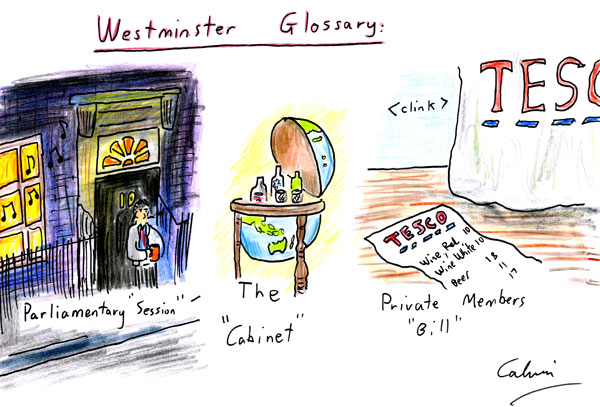 Westminster Glossary:
TESC
<clink>
TESCO
Wine, Red 10
Wine White 10
Beer 18
" 17
Parliamentary "Session"
The
"Cabinet"
Private Members
"Bill"